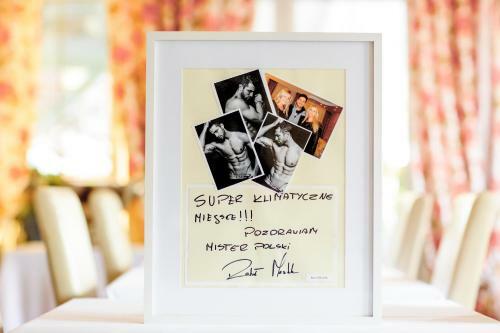 SUPER KLIMATYCZNE
MIEJSCE!!!
POZDRAWIAM
MISTER POLSKI